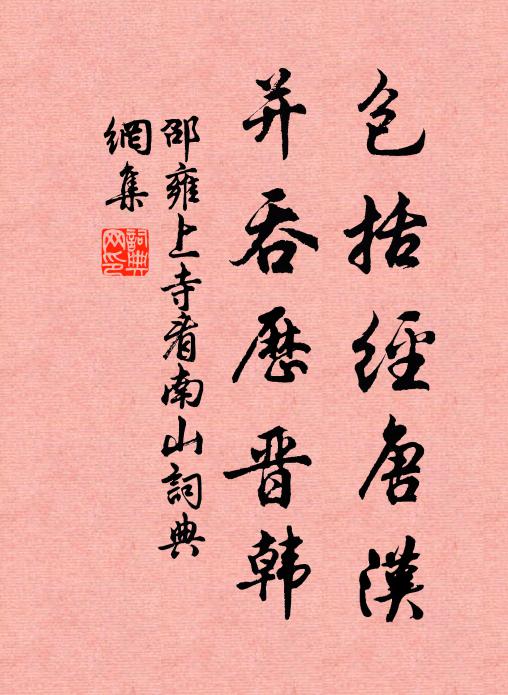 包括經唐漢
并吞歷晉韩
邵雍上寺看南山詞典
網集
詞典
网印